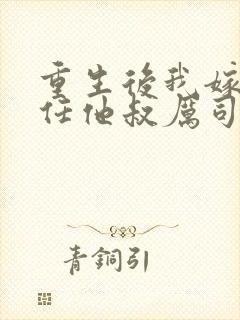 重生後我嫁
任他叔厲司
青銅引